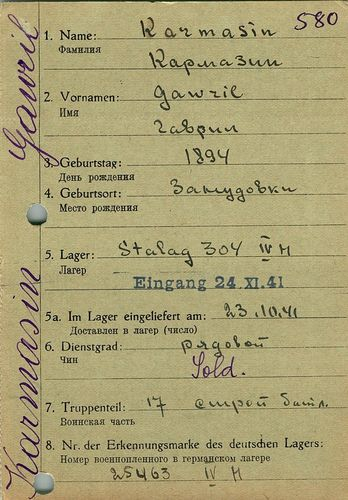 580
Karmasin Gawril
1. Name: Karmasin
Фамилия
Кармазин
2. Vornamen: Gawril
Имя
Гаврил
3. Geburtstag: 1894
День рождения
4. Geburtsort: Замудовки
Место рождения
5. Lager: Stalag 304 IV H
Лагерь
Eingang 24. XI. 41
5a. Im Lager eingeliefert am: 23.10.41
Доставлен в лагерь (число)
6. Dienstgrad: рядовой
Чин
Sold.
7. Truppenteil: 17 строй бат.
Воинская часть
8. Nr. der Erkennungsmarke des deutschen Lagers:
Номер военнопленного в германском лагере
25463 IV H